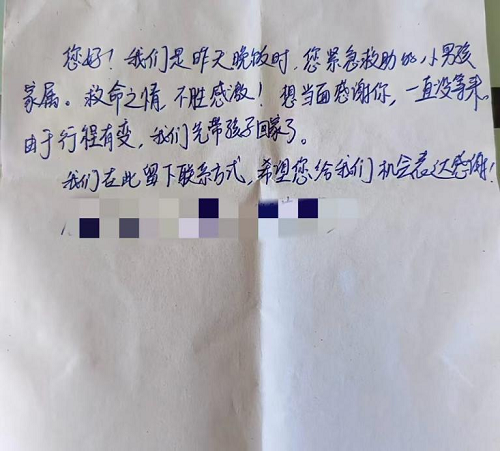 您好！我们是昨天晚饭时，您紧急救助的小男孩
家属。救命之情，不胜感激！想当面感谢你，一直没等来。
由于行程有变，我们先带孩子回家了。
我们在此留下联系方式，希望您给我们机会表达感谢！